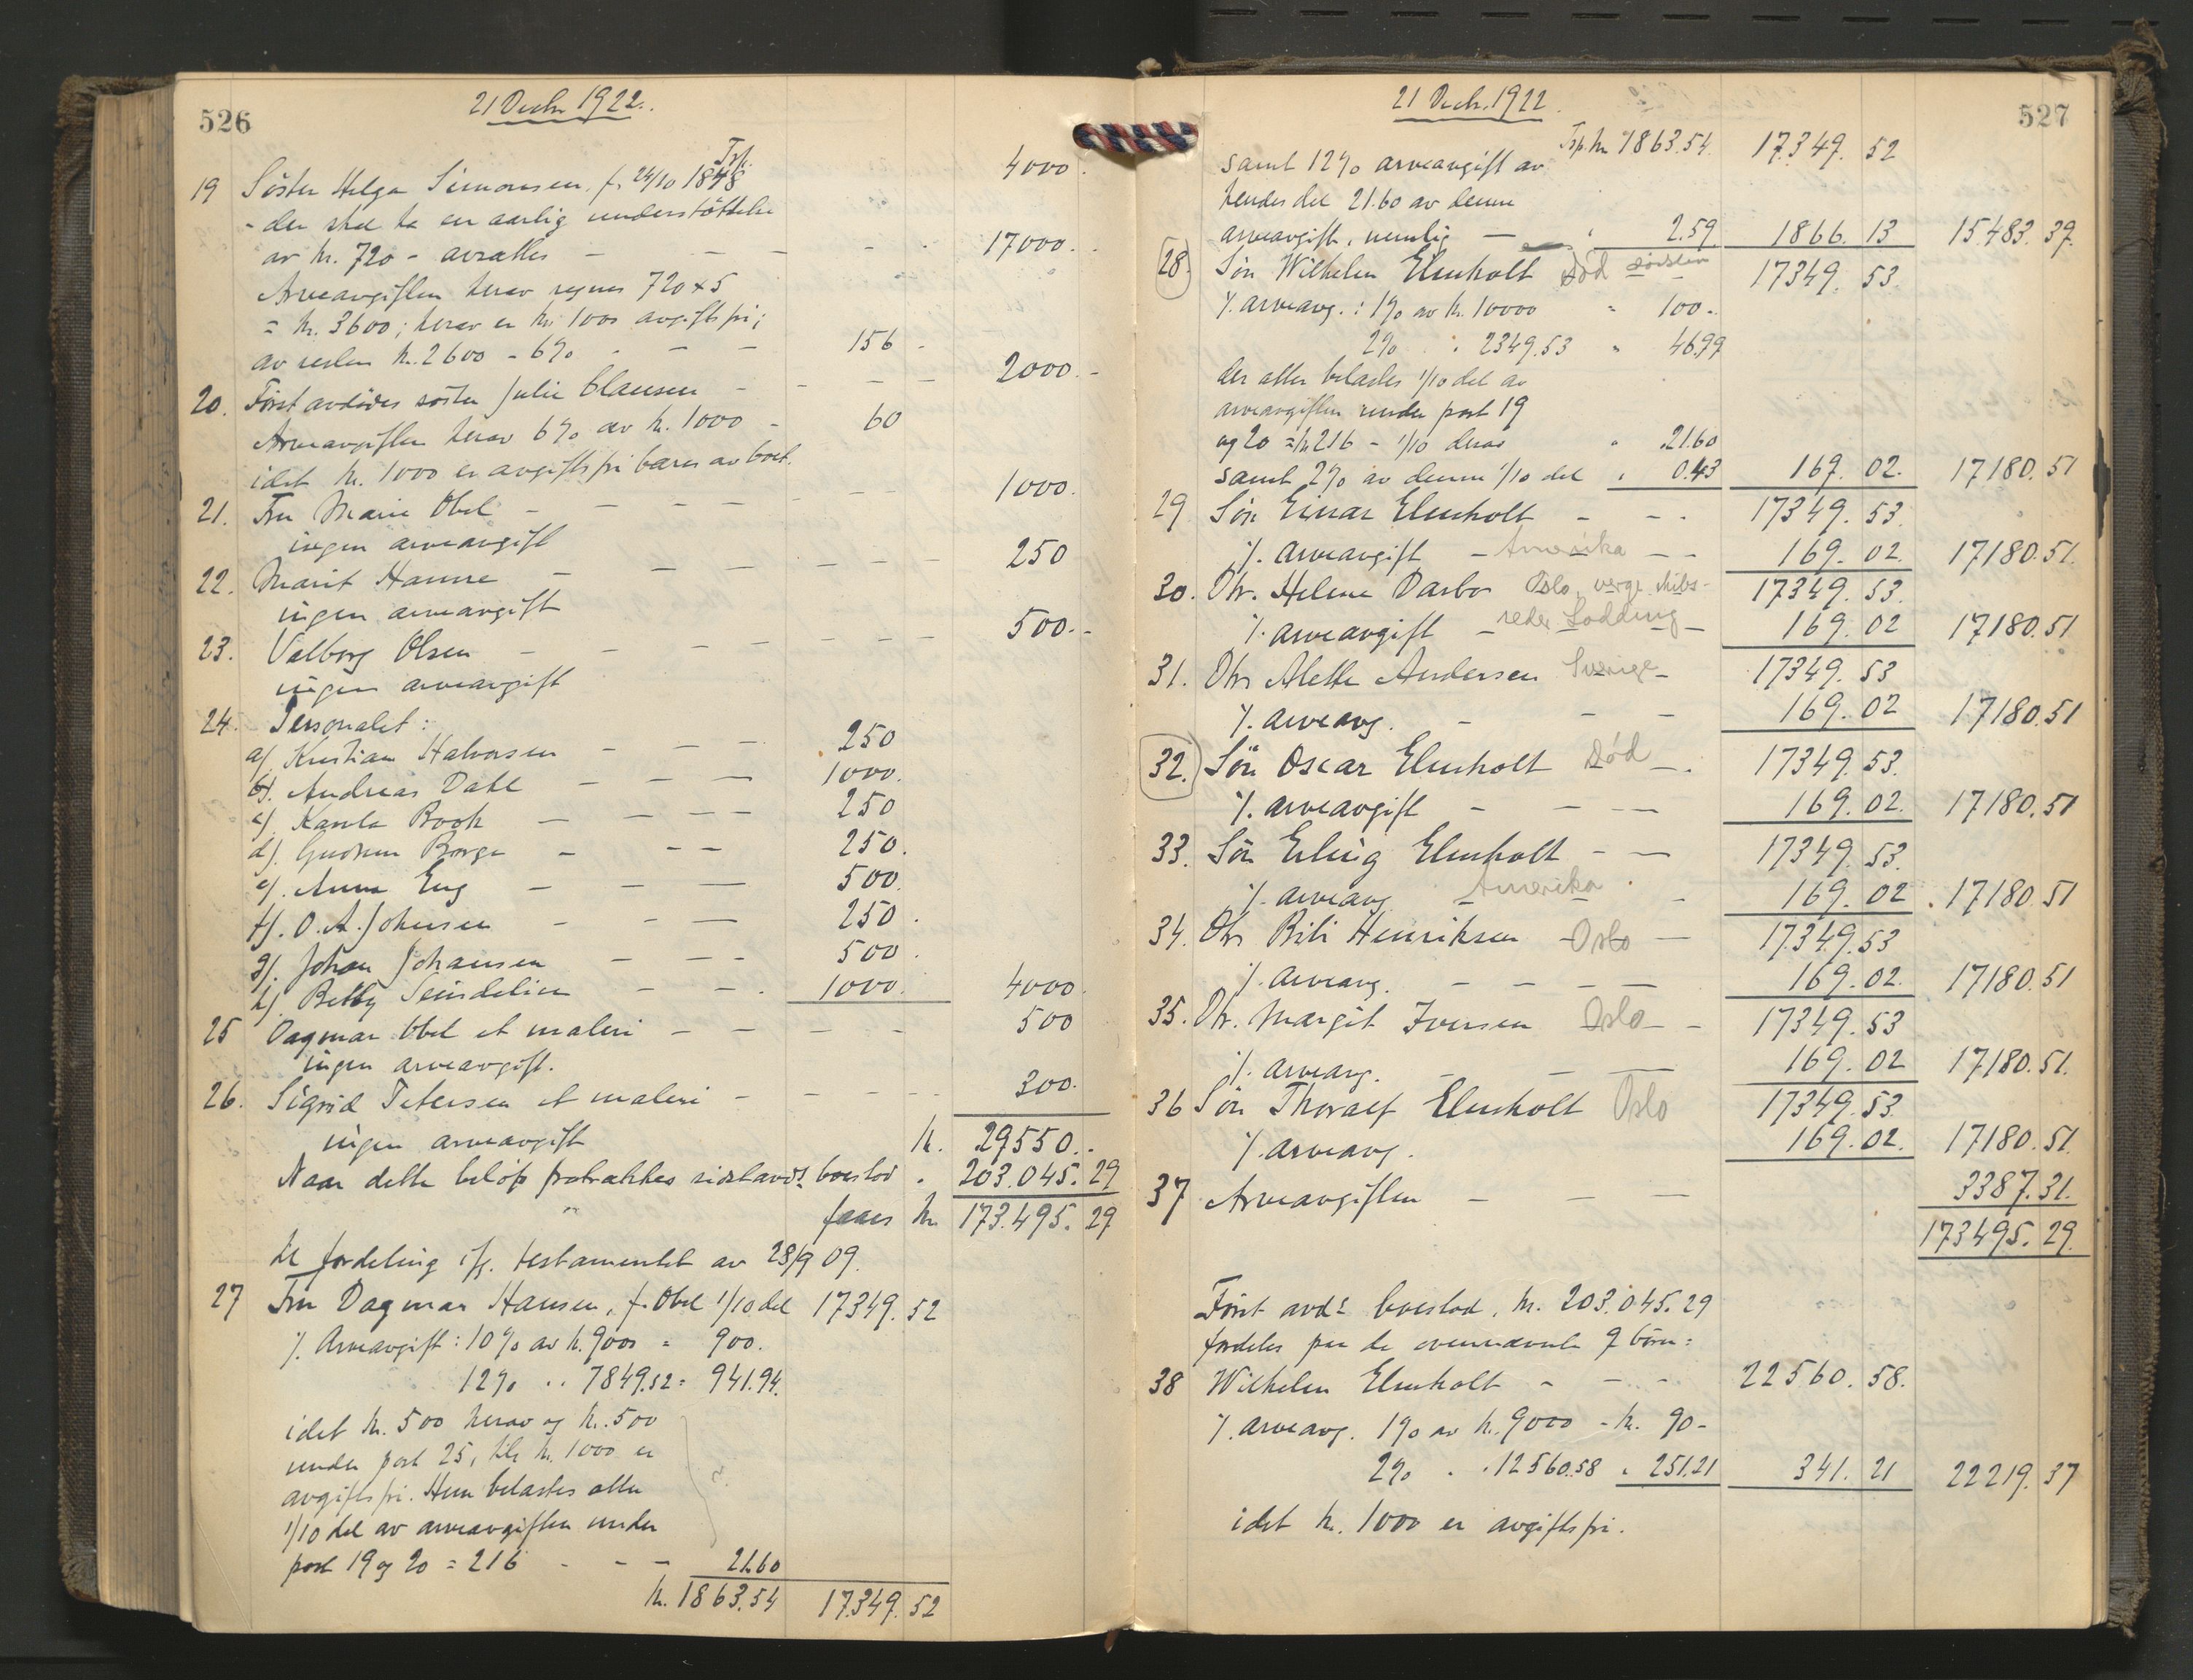 526
21 Decbr. 1922.
Trsp. 4000.
19 Söster Helga Simonsen, f. 24/10 1848
- der skal ha en aarlig understöttelse
av kr. 720 - avsættes - - - 17000.
Arveavgiften herav regnes 720 x 5
= kr. 3600; herav er kr. 1000 avgiftsfri;
av resten kr. 2600 - 6% - - 156 -
20. Först avdödes söster Julie Clausen - - - 2000.-
Arveavgiften herav 6% av kr. 1000 - 60
idet kr. 1000 er avgiftsfri bæres av boet.
21. Fru Marie Obel - - - - 1000.
ingen arveavgift
22. Marit Hamre - - - - 250
ingen arveavgift
23. Valborg Olsen - - - - 500.-
ingen arveavgift
24. Personalet:
a). Kristian Halvorsen - - - 250
b). Andreas Dahl - - - 1000.
c). Karla Rook - - - 250
d). Gudrun Borge - - - 250.
e). Anna Eng - - - 500.
f). O. A. Johnsen - - - 250.
g). Johan Johansen - - - 500.
h). Betty Seindelin - - - 1000. 4000.
25 Dagmar Obel et maleri - - - - 500
ingen arveavgift.
26. Sigrid Petersen et maleri - - - - 300.
ingen arveavgift kr. 29550.-
Naar dette belöp fratrækkes sidstavd. boeslod . 203.045.29
" faaes kr. 173.495.29
til fordeling ifg. testamentet av 28/9 09.
27 Fru Dagmar Hansen, f. Obel 1/10 del 17349.52
%. Arveavgift: 10% av kr. 9000 = 900.
12% .. 7849.52 = 941.94.
idet kr. 500 herav og kr. 500
under post 25, tils. kr. 1000 er
avgiftsfri. Hun belastes etter
1/10 del av arveavgiften under
post 19 og 20 = 216 - - - 21.60
kr. 1863.54 17349.52
527
21 Decbr. 1922
Trsp. kr. 1863.54. 17349.52
samt 12% arveavgift av
hendes del 21.60 av denne
arveavgift, nemlig — " 2.59. 1866.13 15483.39.
28. Sön Wilhelm Elmholt Död 17349.53.
%. arveavg.: 1% av kr. 10000 " 100.-
2% . 2349.53 " 46.99
der etter belastes 1/10 del av
arveavgiften under post 19
og 20 = kr. 216 - 1/10 derav " 21.60
samt 2% av denne 1/10 del " 0.43 169.02. 17180.51
29 Sön Einar Elmholt - - - 17349.53.
%. arveavgift - Amerika - - 169.02 17180.51.
30. Dtr. Helene Darbo Oslo, verge skibs- 17349.53.
%. arveavgift - reder Lodding - 169.02 17180.51
31. Dtr Alette Andersen Sverige - 17349.53
%. arveavg. - - - 169.02 17180.51
32. Sön Oscar Elmholt Död -. 17349.53.
%. arveavgift - - - 169.02. 17180.51
33. Sön Erling Elmholt - - 17349.53.
%. arveavg. - Amerika - - 169.02 17180.51
34. Dtr Bibi Henriksen - Oslo - 17349.53
%. arveavg. - - - - 169.02. 17180.51
35. Dtr. Margit Iversen Oslo - - 17349.53
%. arveavg. - - - 169.02 17180.51.
36 Sön Thoralf Elmholt Oslo 17349.53.
%. arveavg. 169.02. 17180.51.
37 Arveavgiften - - - 3387.31.
173495.29.
Först avd. boeslod, kr. 203.045.29
fordeles paa de ovennævnte 9 börn:
38 Wilhelm Elmholt - - - 22560.58.
%. arveavg. 1% av kr. 9000 - kr. 90 -
2% . . 12560.58 " 251.21 341.21 22219.37
idet kr. 1000 er avgiftsfri.